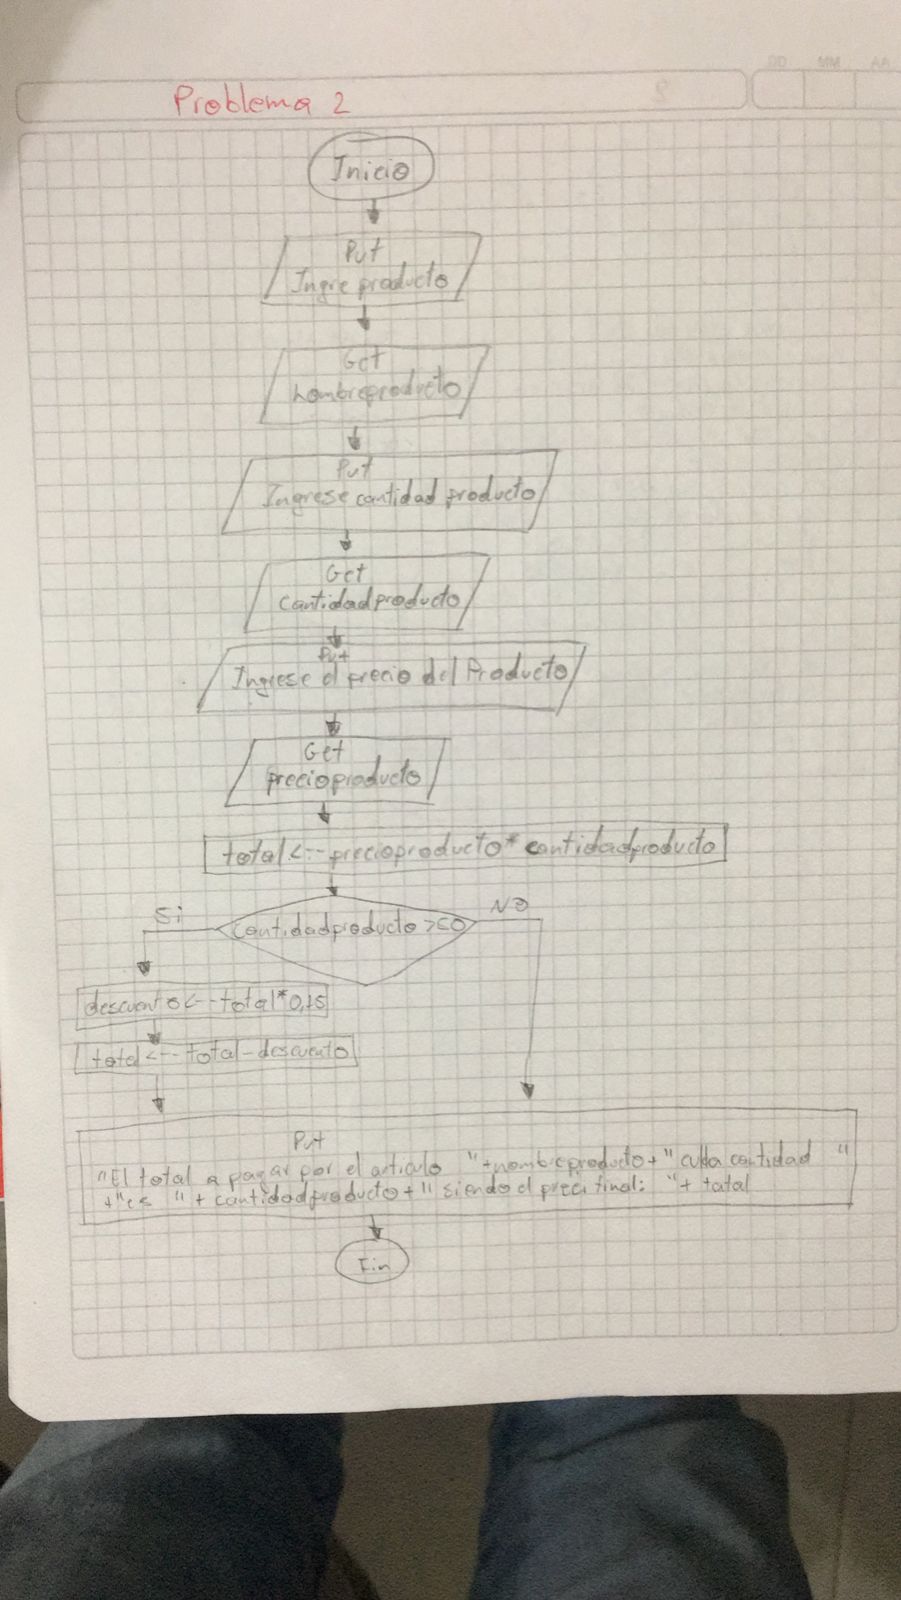 Problema 2
DD MM AA
Inicio
Put
Ingre producto
Get
nombreproducto
Put
Ingrese cantidad producto
Get
cantidadproducto
Put
Ingrese el precio del Producto
Get
precioproducto
total<--precioproducto*cantidadproducto
Si
cantidadproducto >50
NO
descuento<--total*0,15
total<--total-descuento
Put
"El total a pagar por el articulo "+nombreproducto+" cuya cantidad "
+"es "+cantidadproducto+" siendo el preci final: "+ total
Fin